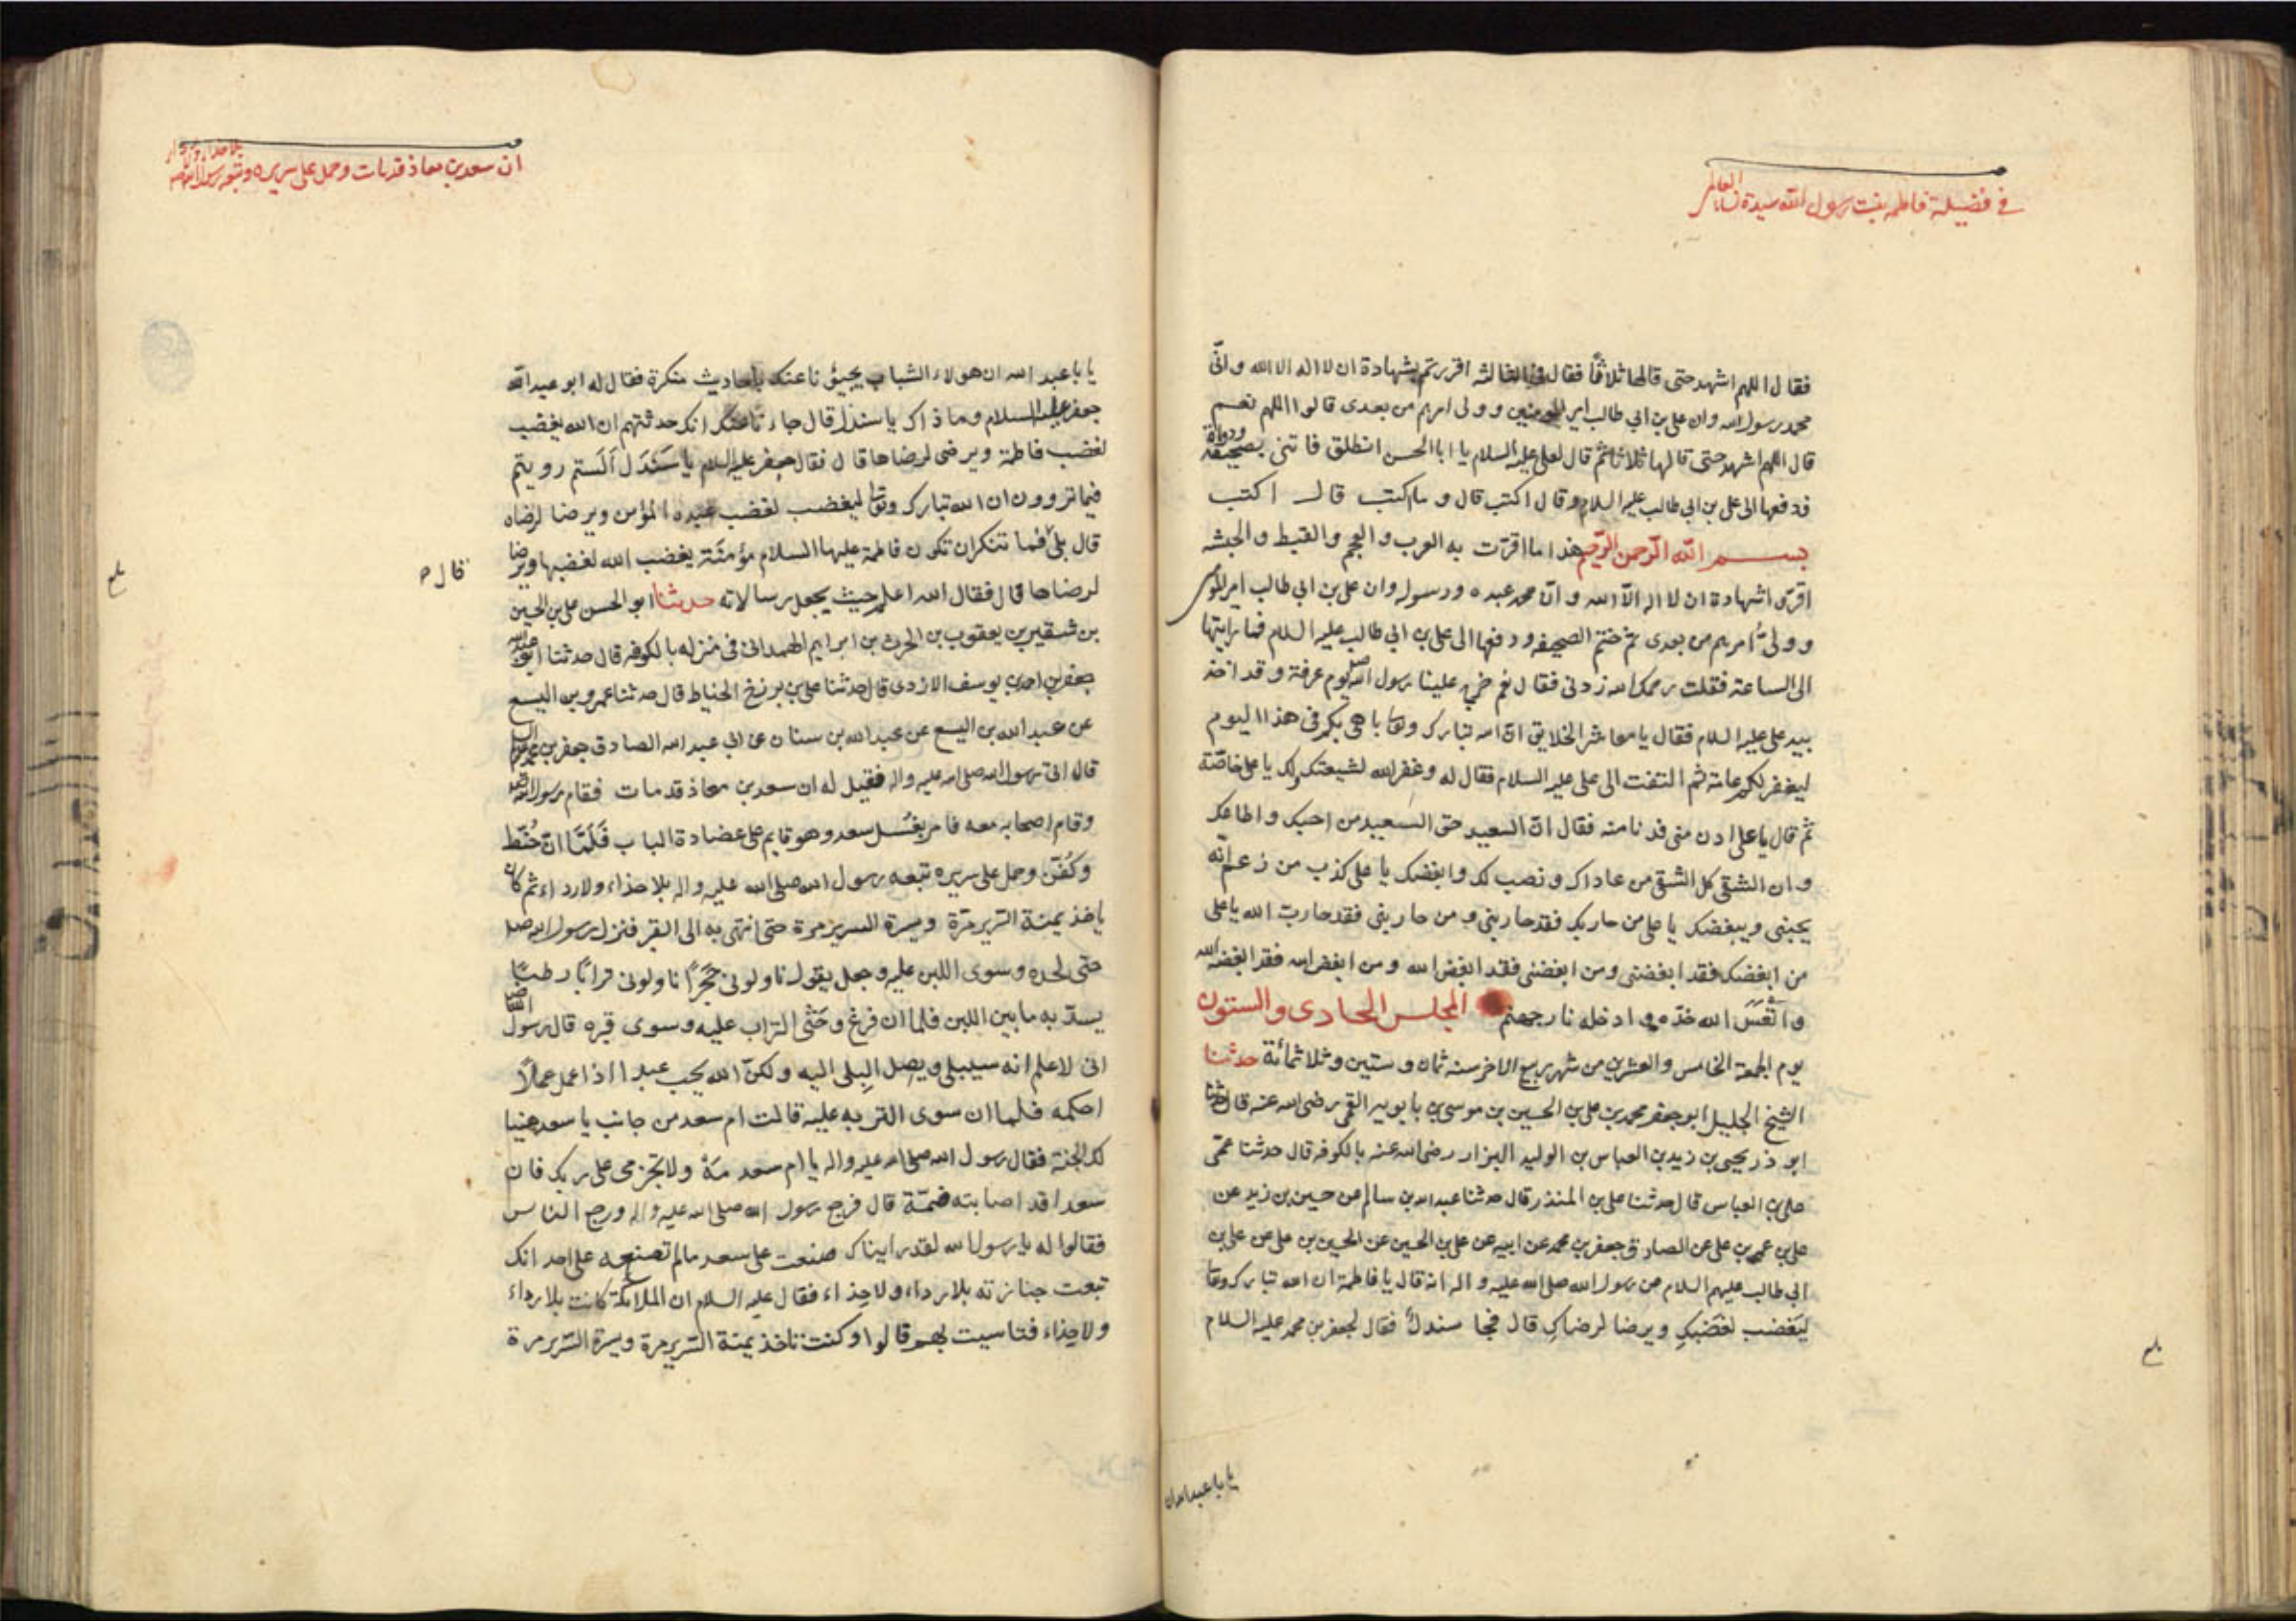 في فضيلة فاطمه بنت رسول الله سيدة نساء العالم
فقال اللهم اشهد حتى قالها ثلاثا فقال في الثالثه اقررتم بشهادة ان لا اله الا الله وانّى
محمد رسول الله وان على بن ابي طالب امير المومنين وولى امرهم من بعدى قالوا اللهم نعم
قال اللهم اشهد حتى قالها ثلاثا ثم قال لعلى عليه السلام يا ابا الحسن انطلق فاتنى بصحيفة ودواة
فدفعها الى على بن ابى طالب عليه السلام وقال اكتب قال وما اكتب قال اكتب
بسم الله الرّحمن الرّحيم هذا ما اقرّت به العرب والعجم والقبط والحبشه
اقرّوا شهادة ان لا اله الّا الله وانّ محمد عبده ورسوله وان على بن ابي طالب امير المومنين
وولىّ امرهم من بعدى ثم ختم الصحيفه ودفعها الى على بن ابي طالب عليه السلام فما رايتها
الى الساعته فقلت رحمك الله زدنى فقال نعم خرج علينا رسول الله صلى يوم عرفة وقد اخذ
بيد على عليه السلام فقال يا معاشر الخلايق انّ الله تبارك وتعا باهى بكم فى هذا اليوم
ليغفر لكم عامة ثم التفت الى على عليه السلام فقال له وغفر الله لشيعتك ولك يا على خاصّة
ثم قال يا على ادن منى فدنا منه فقال انّ السعيد حق السعيد من احبك واطاعك
وان الشقى كل الشقى من عاداك ونصب لك وابغضك يا على كذب من زعم انّه
يحبنى ويبغضك يا على من حاربك فقد حاربنى ومن حاربنى فقد حارب الله يا على
من ابغضك فقد ابغضنى ومن ابغضنى فقد ابغض الله ومن ابغض الله فقد ابغضه الله
واتعَسَ الله خدّه وادخله نار جهنم المجلس الحادى والستون
يوم الجمعة الخامس والعشرين من شهر ربيع الاخر سنه ثمان وستين وثلاثمائة حدثنا
الشيخ الجليل ابو جعفر محمد بن على بن الحسين بن موسى بن بابويه القمى رضى الله عنه قال حدثنا
ابو ذر يحيى بن زيد بن العباس بن الوليد البزار رضى الله عنه بالكوفه قال حدثنا عمّى
على بن العباس قال حدثنا على بن المنذر قال حدثنا عبد الله بن سالم عن حسين بن زيد عن
على بن عمر بن على عن الصادق جعفر بن محمد عن ابيه عن على بن الحسين عن الحسين بن على عن على بن
ابي طالب عليهم السلام عن رسول الله صلى الله عليه واله انه قال يا فاطمة ان الله تبارك وتعا
ليَغضب لغَضَبكِ ويرضا لرضاكِ قال فجا سندل فقال لجعفر بن محمد عليه السلام
يا با عبد الله ان
بلغ
ان سعد بن معاذ قد مات وحمل على سريره وتبعه رسول الله صلى بلا حذاء ولا رداء
يا با عبد الله ان هولاء الشباب يجيؤنا عنك باحاديث منكرة فقال له ابو عبد الله
جعفر عليه السلام وما ذاك يا سندل قال جاءنا عنك انك حدثتهم ان الله يغضب
لغضب فاطمة ويرضى لرضاها قال فقال جعفر عليه السلام يا سَندَل اَلَستم رويتم
فيما تروون ان الله تبارك وتعا ليغضب لغضب عبده المؤمن ويرضا لرضاه
قال بلى قال فما تنكر ان تكون فاطمة عليها السلام مؤمنَة يغضب الله لغضبها ويرضا
لرضاها قال فقال الله اعلم حيث يجعل رسالاته حدثنا ابو الحسن على بن الحسين
بن شقير بن يعقوب بن الحرث بن ابراهيم الهمدانى فى منزله بالكوفه قال حدثنا ابو عبد الله
جعفر بن احمد بن يوسف الازدى قال حدثنا على بن بزرخ الحنياط قال حدثنا عمرو بن اليسع
عن عبد الله بن اليسع عن عبد الله بن سنان عن ابي عبد الله الصادق جعفر بن محمد
قال اتى رسول الله صلى الله عليه واله فقيل له ان سعد بن معاذ قد مات فقام رسول الله
وقام اصحابه معه فامر بغسل سعد وهو قايم على عضادة الباب فَلَمّا انّ حُنّط
وكُفّن وحمل على سريره تبعه رسول الله صلى الله عليه واله بلا حذاء ولا رداء ثم كان
ياخذ يمنة السّرير مرّة ويسرة السرير مرة حتى انتهى به الى القبر فنزل رسول الله صلى
حتى لحده وسوى اللبن عليه وجعل يقول ناولونى حَجَرًا ناولونى ترابًا رطبًا
يسدّ به ما بين اللبن فلما ان فرغ وحَثَى التراب عليه وسوى قبره قال رسول الله صلى
انى لاعلم انه سيبلى ويصل البِلى اليه ولكنّ الله يحب عبدا اذا عمل عملًا
احكمه فلما ان سوى التربه عليه قالت ام سعد من جانب يا سعد هنيا
لك الجنة فقال رسول الله صلى الله عليه واله يا ام سعد مَهْ ولا تجزمى على ربك فان
سعدا قد اصابته ضمّة قال فرجع رسول الله صلى الله عليه واله ورجع الناس
فقالوا له يا رسول الله لقد رايناك صنعت على سعد مالم تصنعه على احد انك
تبعت جنازته بلا رداء ولا حذاء فقال عليه السلام ان الملائكة كانت بلا رداء
ولا حذاء فتاسيت بهم قالوا وكنت تاخذ يمنة السّرير مرة ويسرة السّرير مرة
بلغ